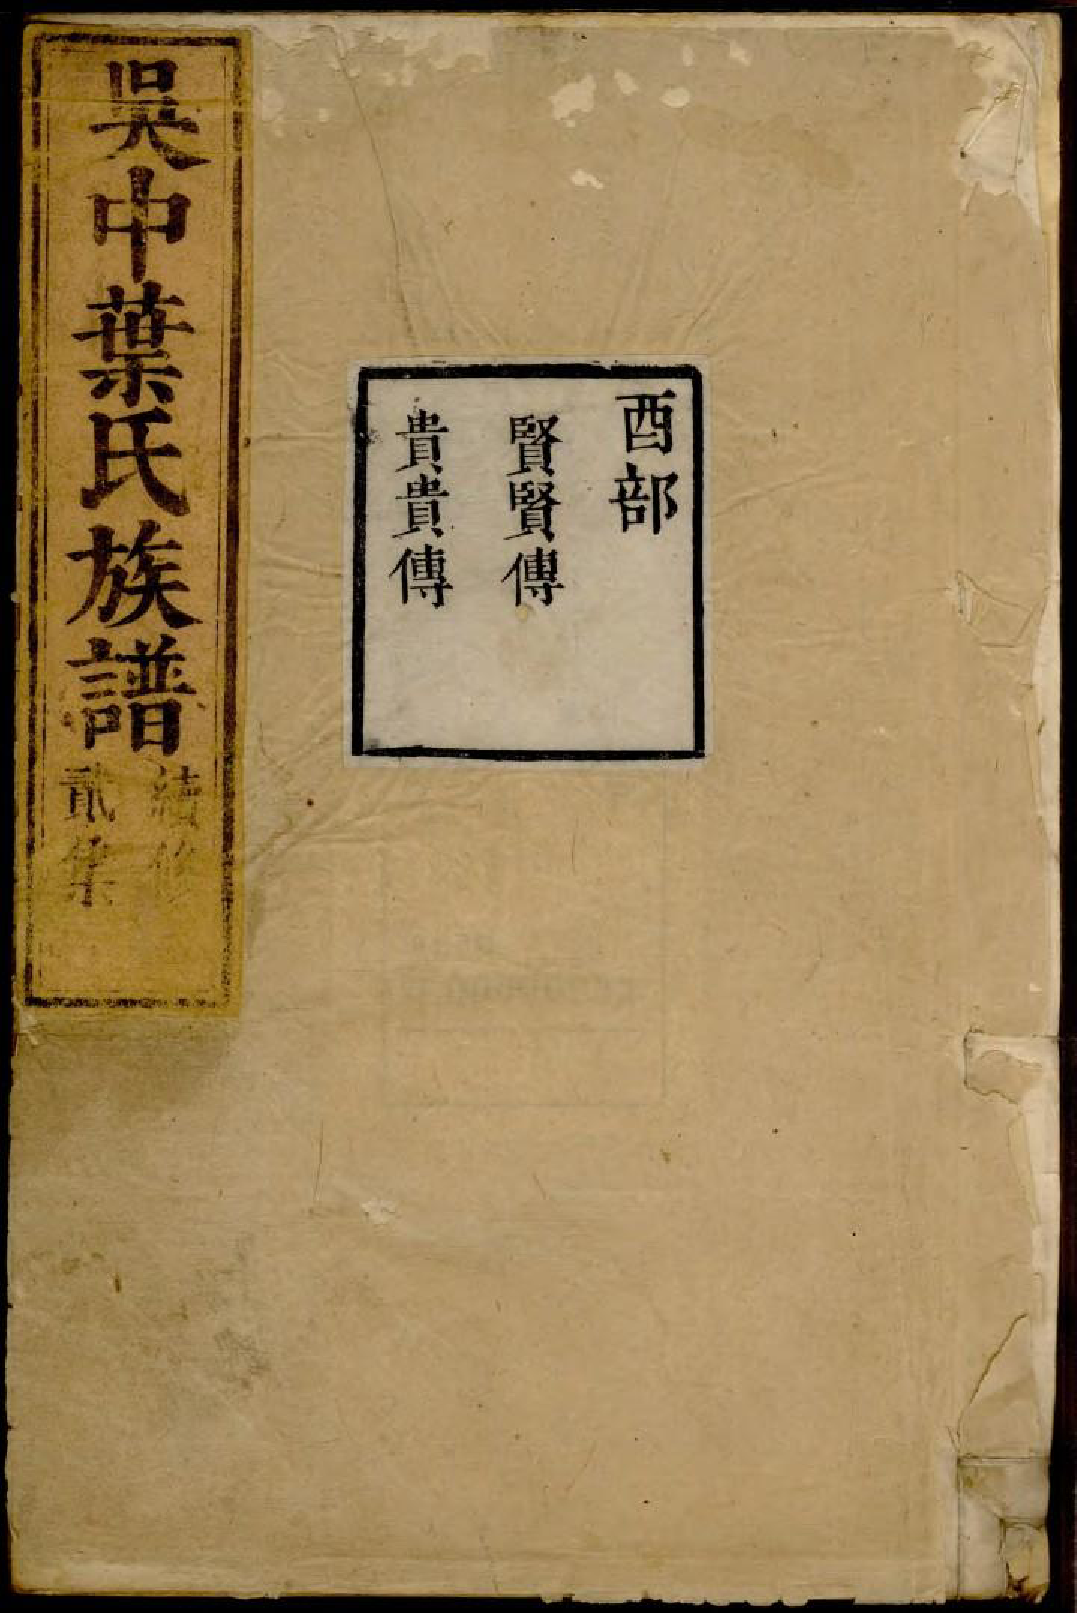 吳中葉氏族譜
續修
貳集
酉部
賢賢傳
貴貴傳